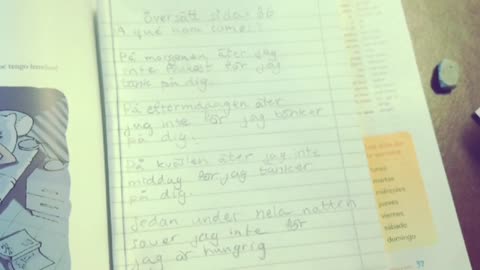 Översätt sidas 86
A qué hora comes?
På morgonen äter jag
inte frukost för jag
tänker på dig.
På eftermidaagen äter
jag inte för jag tänker
på dig.
På kvällen äter jag inte
middag för jag tänker
på dig.
Sedan under hela natten
sover jag inte för
jag är hungrig
tengo hambre!
lunes
martes
miércoles
jueves
viernes
sábado
domingo